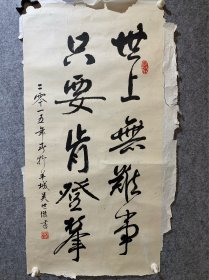 世上無難事
只要肯登攀
二零一五年
羊城吴
书